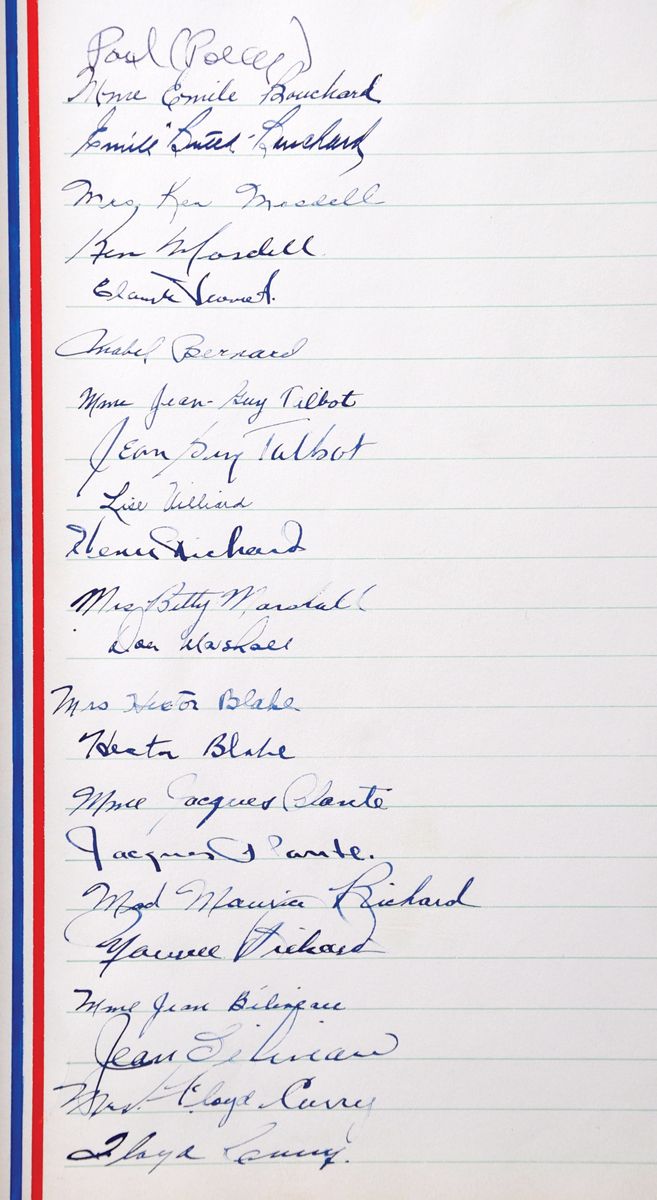 Paul (Polly)
Mme Emile Bouchard
Emile "Butch" Bouchard
Mrs. Ken Mosdell
Ken Mosdell
Claude
Mabel Bernard
Mme Jean-Guy Talbot
Jean Guy Talbot
Lise Villiard
Henri Richard
Mrs Betty Marshall
Don Marshall
Mrs Hector Blake
Hector Blake
Mme Jacques Plante
Jacques Plante.
Mad Maurice Richard
Maurice Richard
Mme Jean Béliveau
Jean Béliveau
Mrs. Floyd Curry
Floyd Curry.